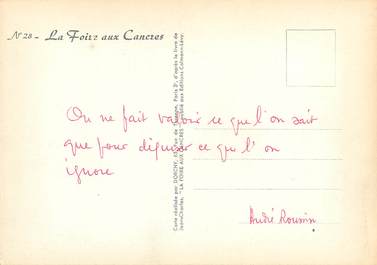 N° 28 - La Foire aux Cancres
On ne fait valoir ce que l'on sait
que pour déguiser ce que l'on
ignore
André Roussin
Carte réalisée par DORCHY, rue de Paris 2e, d'après le livre de
Jean-Charles, "LA FOIRE AUX CANCRES" aux Editions Calmann-Lévy.